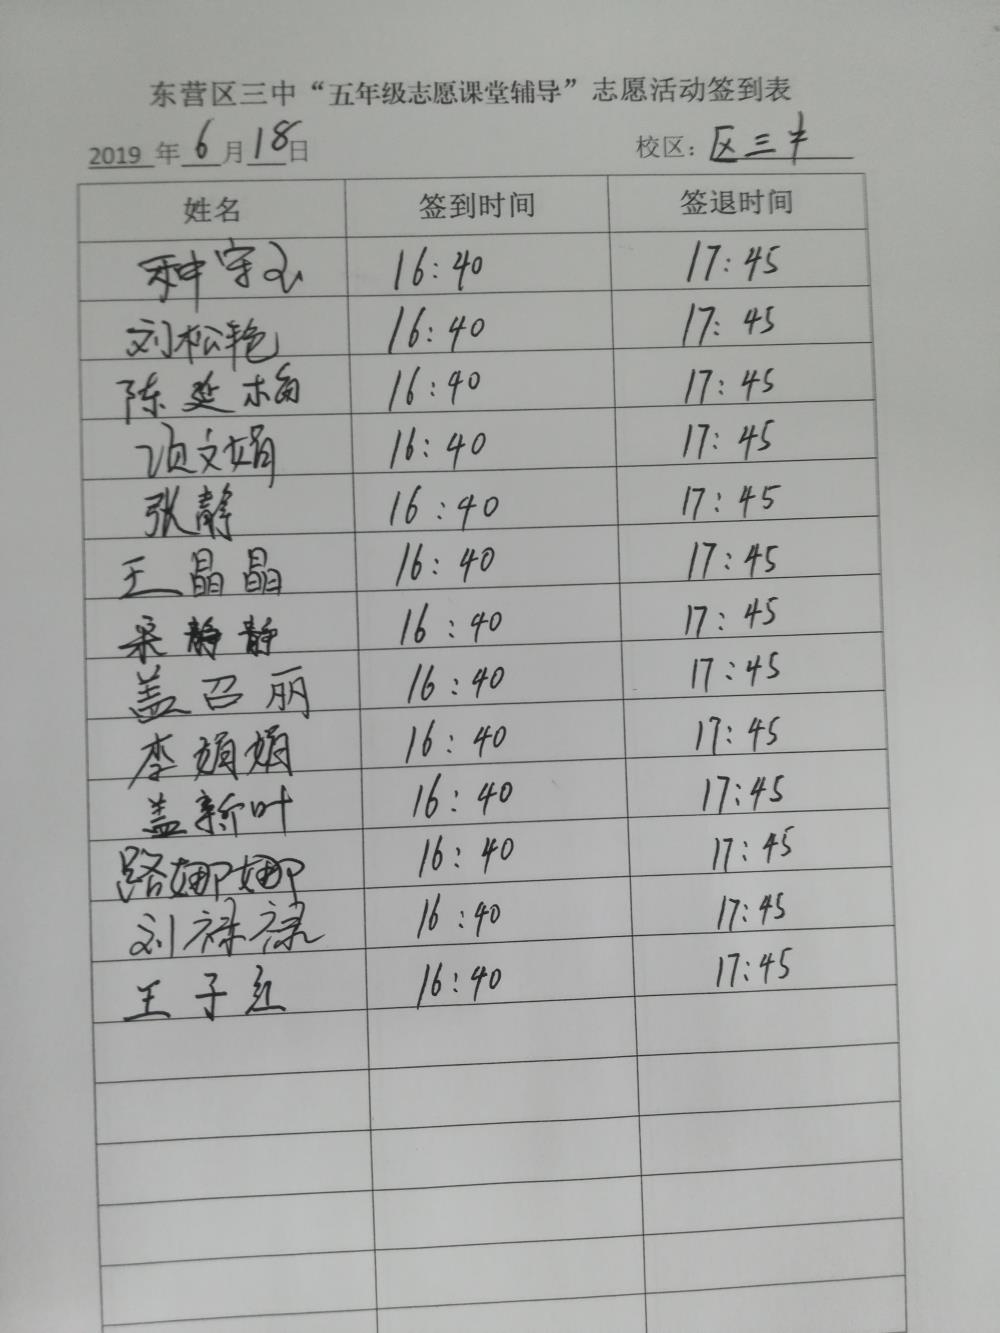 东营区三中“五年级志愿课堂辅导”志愿活动签到表
2019 年 6 月 18 日 校区: 区三中
姓名 签到时间 签退时间
种守 16:40 17:45
刘松艳 16:40 17:45
陈延梅 16:40 17:45
项文娟 16:40 17:45
张静 16:40 17:45
王晶晶 16:40 17:45
采静静 16:40 17:45
盖召丽 16:40 17:45
李娟娟 16:40 17:45
盖新叶 16:40 17:45
路娜娜 16:40 17:45
刘禄禄 16:40 17:45
王子红 16:40 17:45